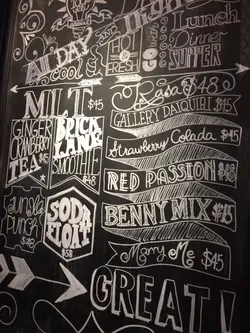 ALL DAY
AND
Night
Cool
Lunch
Dinner
SUPPER
MILT $45
$48
GALLERY DAIQUIRI $45
GINGER
CRANBERRY
TEA
BRICK
LANE
SMOOTHIE
$48
Strawberry Colada $45
RED PASSION $48
BENNY MIX $45
Jungle
Punch
$48
SODA
FLOAT
$58
Marry Me $45
GREAT!